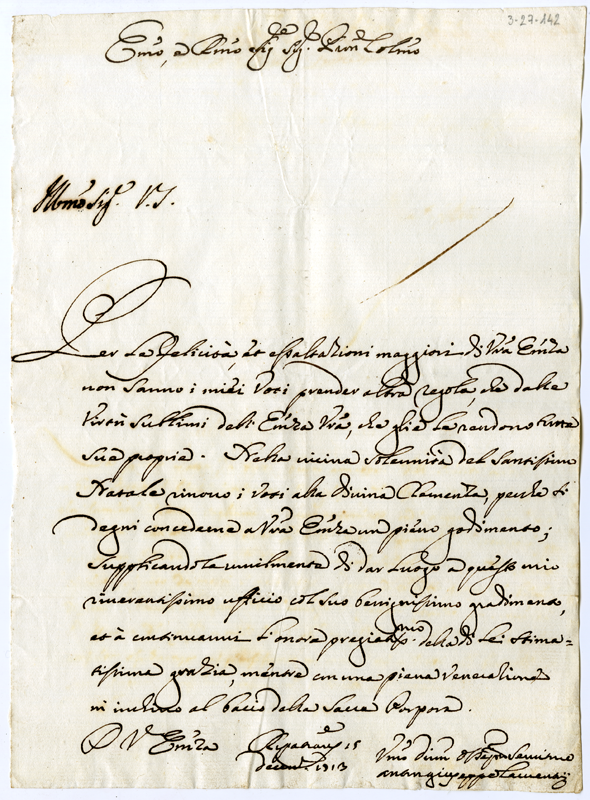 3-27-142
Emo, e Rmo Sig.re Sig.r Pron Colmo
Illmo Sig.r V.S.
Per le felicità, et essaltazioni maggiori di Vra Emza
non sanno i miei Voti prender altra regola che dalle
Virtù sublimi dell' Emza Vra, che glie le rendono tutte
sue proprie. Nella vicina solennità del Santissimo
Natale rinovo i Voti alla Divina Clemenza, perche si
degni concederne a Vra Emza un pieno godimento;
supplicandola umilmente di dar luogo a questo mio
riverentissimo ufficio col suo benignissimo gradimento,
et à continuarmi l'onore pregiatmo della di Lei stima=
tissima grazia, mentre con una piena venerazione
m'inchino al baccio della Sacra Porpora.
D V Emza
Ripatrane 15
decemb. 1713
Vmo divmo Servitore